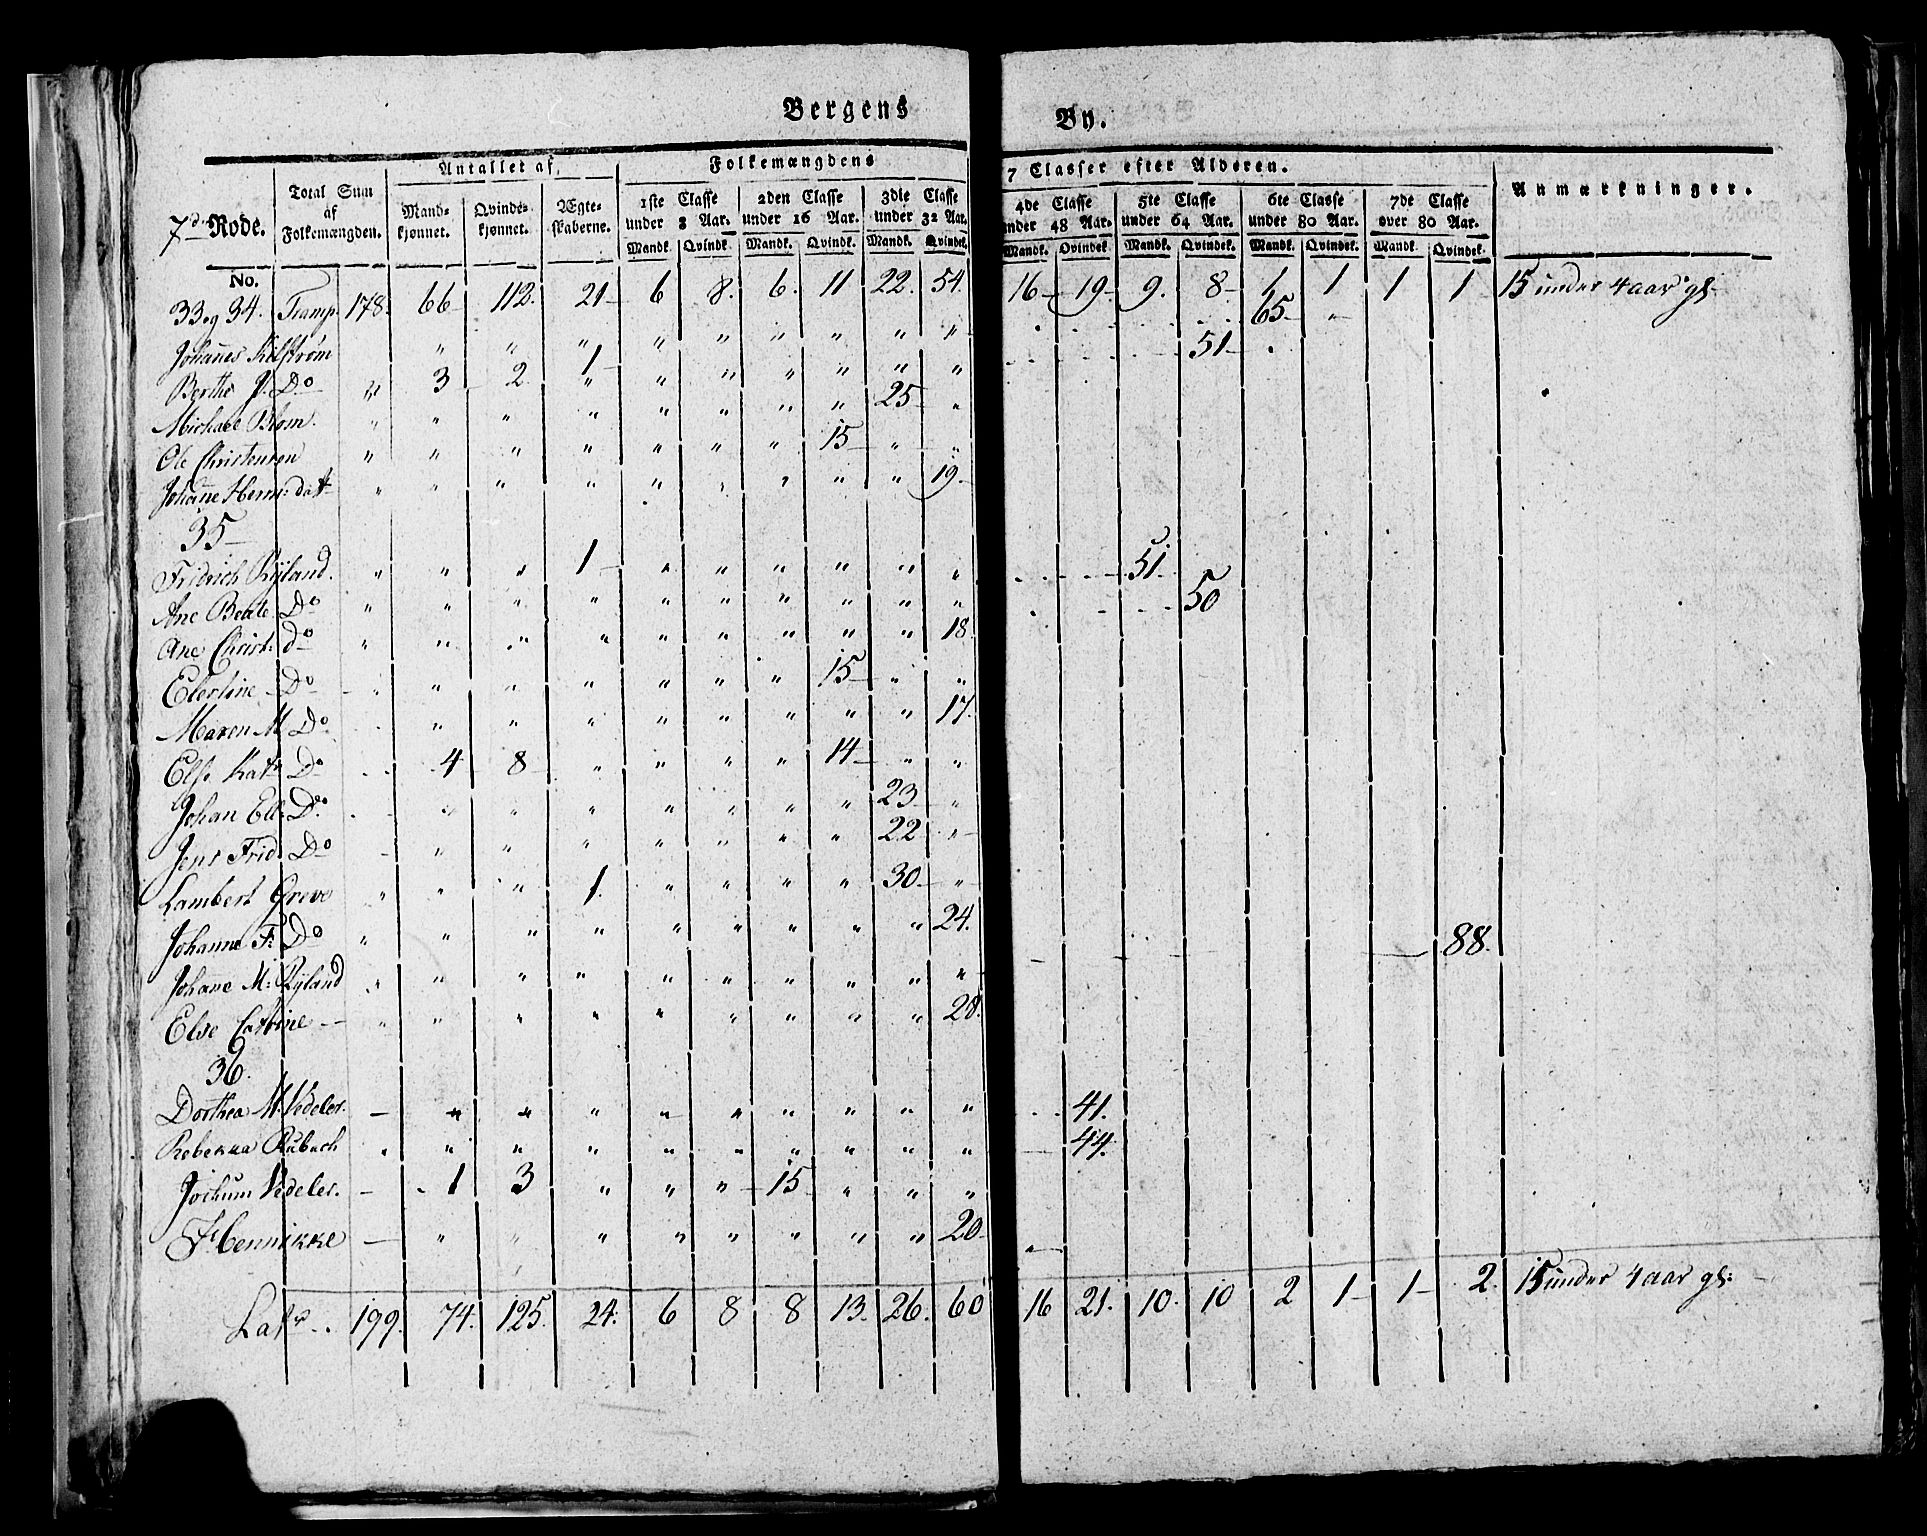 Bergens By.
7de Rode. Total Sum af Folkemængden. Antallet af Mandkjønnet. Qvindekjønnet. Ægteskaberne. Folkemængdens 7 Classer efter Alderen. Anmærkninger.
1ste Classe under 8 Aar. 2den Classe under 16 Aar. 3die Classe under 32 Aar. 4de Classe under 48 Aar. 5te Classe under 64 Aar. 6te Classe under 80 Aar. 7de Classe over 80 Aar.
Mandk. Qvindk. Mandk. Qvindk. Mandk. Qvindek. Mandk. Qvindek. Mandk. Qvindek. Mandk. Qvindek. Mandk. Qvindek.
No.
33 og 34. Transp. 178. 66 112. 21 6 8. 6. 11 22. 54. 16 19 9. 8 1 1 1 1 15 under 4 aar gl.
Johannes Kilstrøm " " " " " " " " " 65 "
Berthe J. Do " 3 2 1 " " " " " " 51
Michael Blom. " " " " " " " " 25 "
Ole Christensen " " " " " " " 15 " "
Johanne Herm: dat " " " " " " " " " 19.
35
Fridrich Ryland. " " " 1 " " " " " " 51.
Ane Beate Do " " " " " " " " " " 50
Ane Christ: do " " " " " " " " " 18
Elertine Do " " " " " " " 15 " "
Maren M Do " " " " " " " " 17.
Else Kat. Do 4 8 " " " " 14 " "
Johan Ell. Do. " " " " " " " 23 "
Jens Frid. Do " " " " " " " 22 "
Lambert Greve " " " 1. " " " " 30 "
Johanne F: Do " " " " " " " " " 24.
Johane M: Ryland " " " " " " " " " " 88.
Else Catrine " " " " " " " " " 28.
36.
Dorthea M. Vedeler. " " " " " " " " " 41.
Rebekka Rubach " " " " " " " " " " 44.
Jochum Vedeler. 1 3 " " " 15 " " "
F. Cennikke " " " " " " " " 20
Latr. 199. 74. 125. 24. 6 8 8 13. 26. 60 16 21. 10. 10 2 1 1 2. 15 under 4 aar gl: